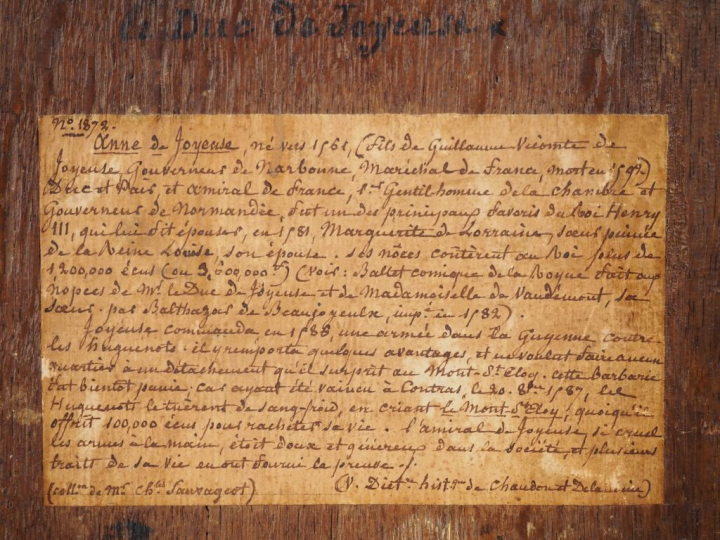 le Duc de Joyeuse
No. 1872.
Anne de Joyeuse, né vers 1561, (fils de Guillaume Vicomte de
Joyeuse Gouverneur de Narbonne, Maréchal de France, mort en 1592)
Duc et Pair, et Amiral de France, 1er Gentilhomme de la chambre et
Gouverneur de Normandie, fut un des principaux favoris du Roi Henry
III, qui lui fit épouser, en 1581, Marguerite de Lorraine, sœur puinée
de la Reine Louise, son épouse. ses nôces contèrent au Roi plus de
1,200,000 écus (ou 3,600,000 #) (Vois: Ballet comique de la Royne fait aux
nopces de Mr. le Duc de Joyeuse et de Madamoiselle de Vaudemont, sa
sœur, par Balthazar de Beaujoyeulx, impé. en 1582).
Joyeuse commanda en 1588, une armée dans la Guyenne contre
les huguenots. il y remporta quelques avantages, et ne voulut faire aucun
quartier à un détachement qu'il surprit au Mont-St. Eloy. cette barbarie
fut bientôt punie. car ayant été vaincu à Contras, le 20. 8bre 1587, les
Huguenots le tuèrent de sang-froid, en criant le Mont-St. Eloy, quoiqu'il
offrit 100,000 écus pour racheter sa vie. l'amiral de Joyeuse, si cruel
les armes à la main, étoit doux et généreux dans la société, et plusieurs
traits de sa vie en ont fourni la preuve./.
(collon. de Mr. Chles Sauvageot) (V. Dictre. histque de Chaudon et Delandine)